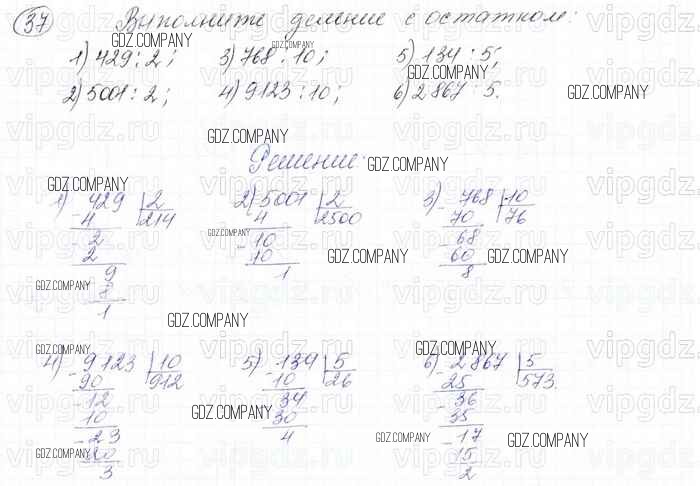 37 Выполните деление с остатком:
1) 429 : 2; 3) 768 : 10; 5) 134 : 5;
2) 5001 : 2; 4) 9123 : 10; 6) 2867 : 5.
Решение:
1) 429 2 2) 5001 2 3) 768 10
4 214 4 2500 70 76
2 10 68
2 10 60
9 1 8
8
1
4) 9123 10 5) 134 5 6) 2867 5
90 912 10 26 25 573
12 34 36
10 30 35
23 4 17
20 15
3 2
GDZ.COMPANY
vipgdz.ru